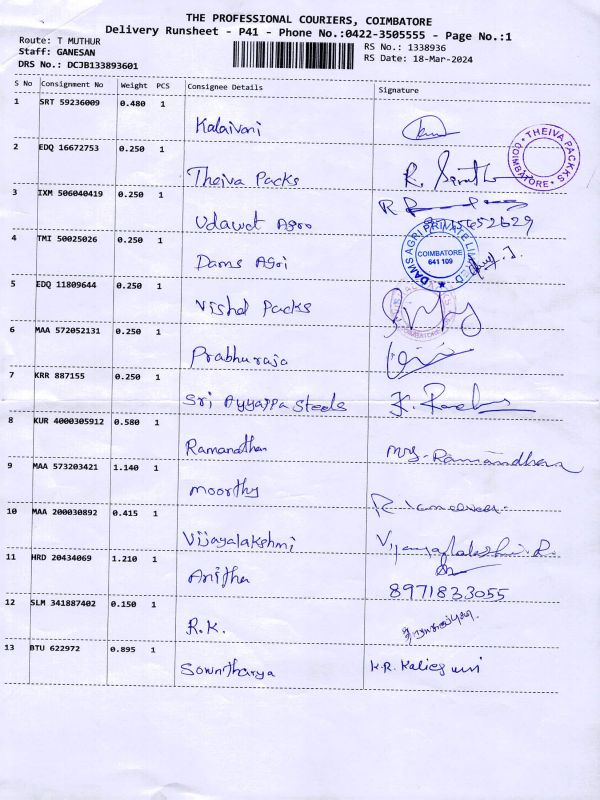 THE PROFESSIONAL COURIERS, COIMBATORE
Delivery Runsheet - P41 - Phone No.:0422-3505555 - Page No.:1
Route: T MUTHUR
RS No.: 1338936
Staff: GANESAN
RS Date: 18-Mar-2024
DRS No.: DCJB133893601
S No Consignment No Weight PCS Consignee Details Signature
1 SRT 59236009 0.480 1
Kalaivani
2 EDQ 16672753 0.250 1
THEIVA PACKKS COIMBATORE
Theiva Packs R.
3 IXM 506040419 0.250 1
Udawat Agro
4 TMI 50025026 0.250 1
DAMS AGRI PRIVATE LIMITED
COIMBATORE
641 109
Dams Agri
5 EDQ 11809644 0.250 1
Vishal Packs
6 MAA 572052131 0.250 1
Prabhuraja
7 KRR 887155 0.250 1
Sri Ayyappa Steels
8 KUR 4000305912 0.580 1
Ramanathan
9 MAA 573203421 1.140 1
Moorthy
10 MAA 200030892 0.415 1
Vijayalakshmi
11 HRD 20434069 1.210 1
Anitha 8971833055
12 SLM 341887402 0.150 1
R.K.
13 BTU 622972 0.895 1
Sowntharya K.R.